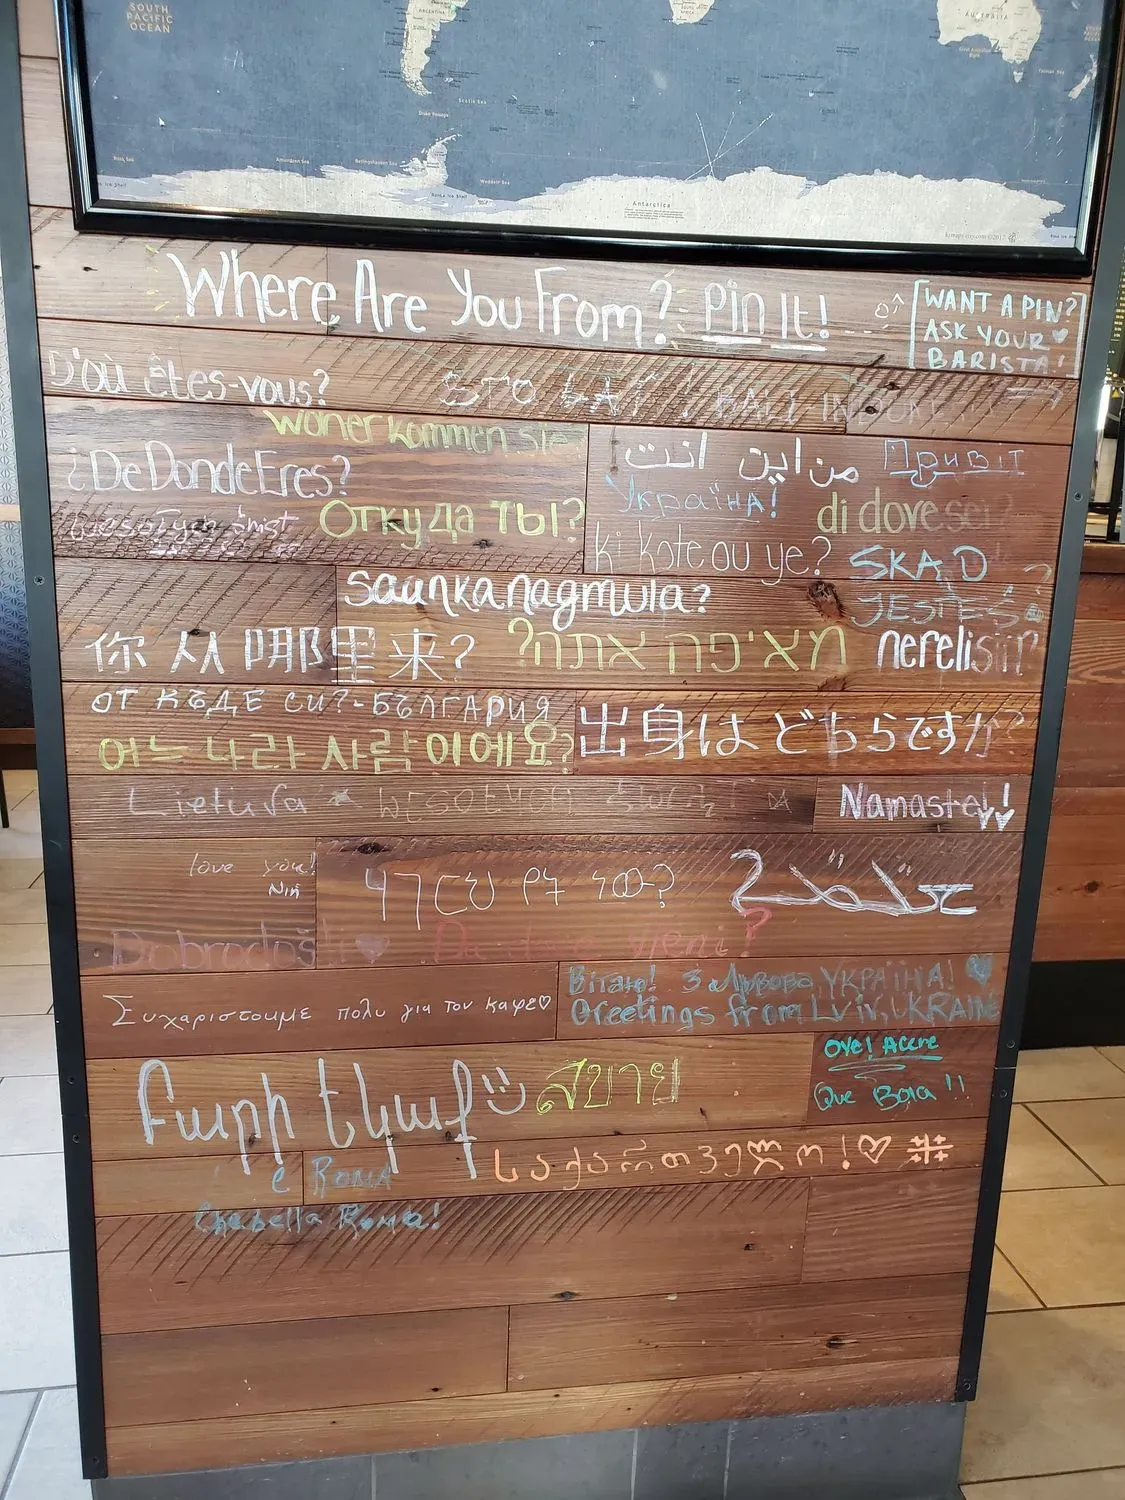 SOUTH PACIFIC OCEAN
ARGENTINA
AUSTRALIA
Scotia Sea
Weddell Sea
Antarctica
Where Are You From? Pin It!
[WANT A PIN?
ASK YOUR
BARISTA!]
D'où êtes-vous?
STO LAT! BALI-INDONE
Woher kommen sie
¿De Donde Eres?
من اين انت
Привіт
Україна!
Откуда ты?
di dove sei?
ki kote ou ye?
SKĄD
JESTEŚ?
saan ka nagmula?
你从哪里来?
מאיפה אתה?
nerelisin?
ОТ КЪДЕ СИ?-БЪЛГАРИЯ
出身はどちらですか?
어느 나라 사람이에요?
Lietuva
Namaste!!
love you!
Dobrodošli
Da
vjeni?
Συχαριστουμε πολυ για τον καφε
Вітаю! З Львова УКРАЇНА!
Greetings from Lviv, UKRAINE
Oye! Accre
Que Bola!!
Բարի եկաք
สบาย
საქართველო!
e ROMA
Roma!